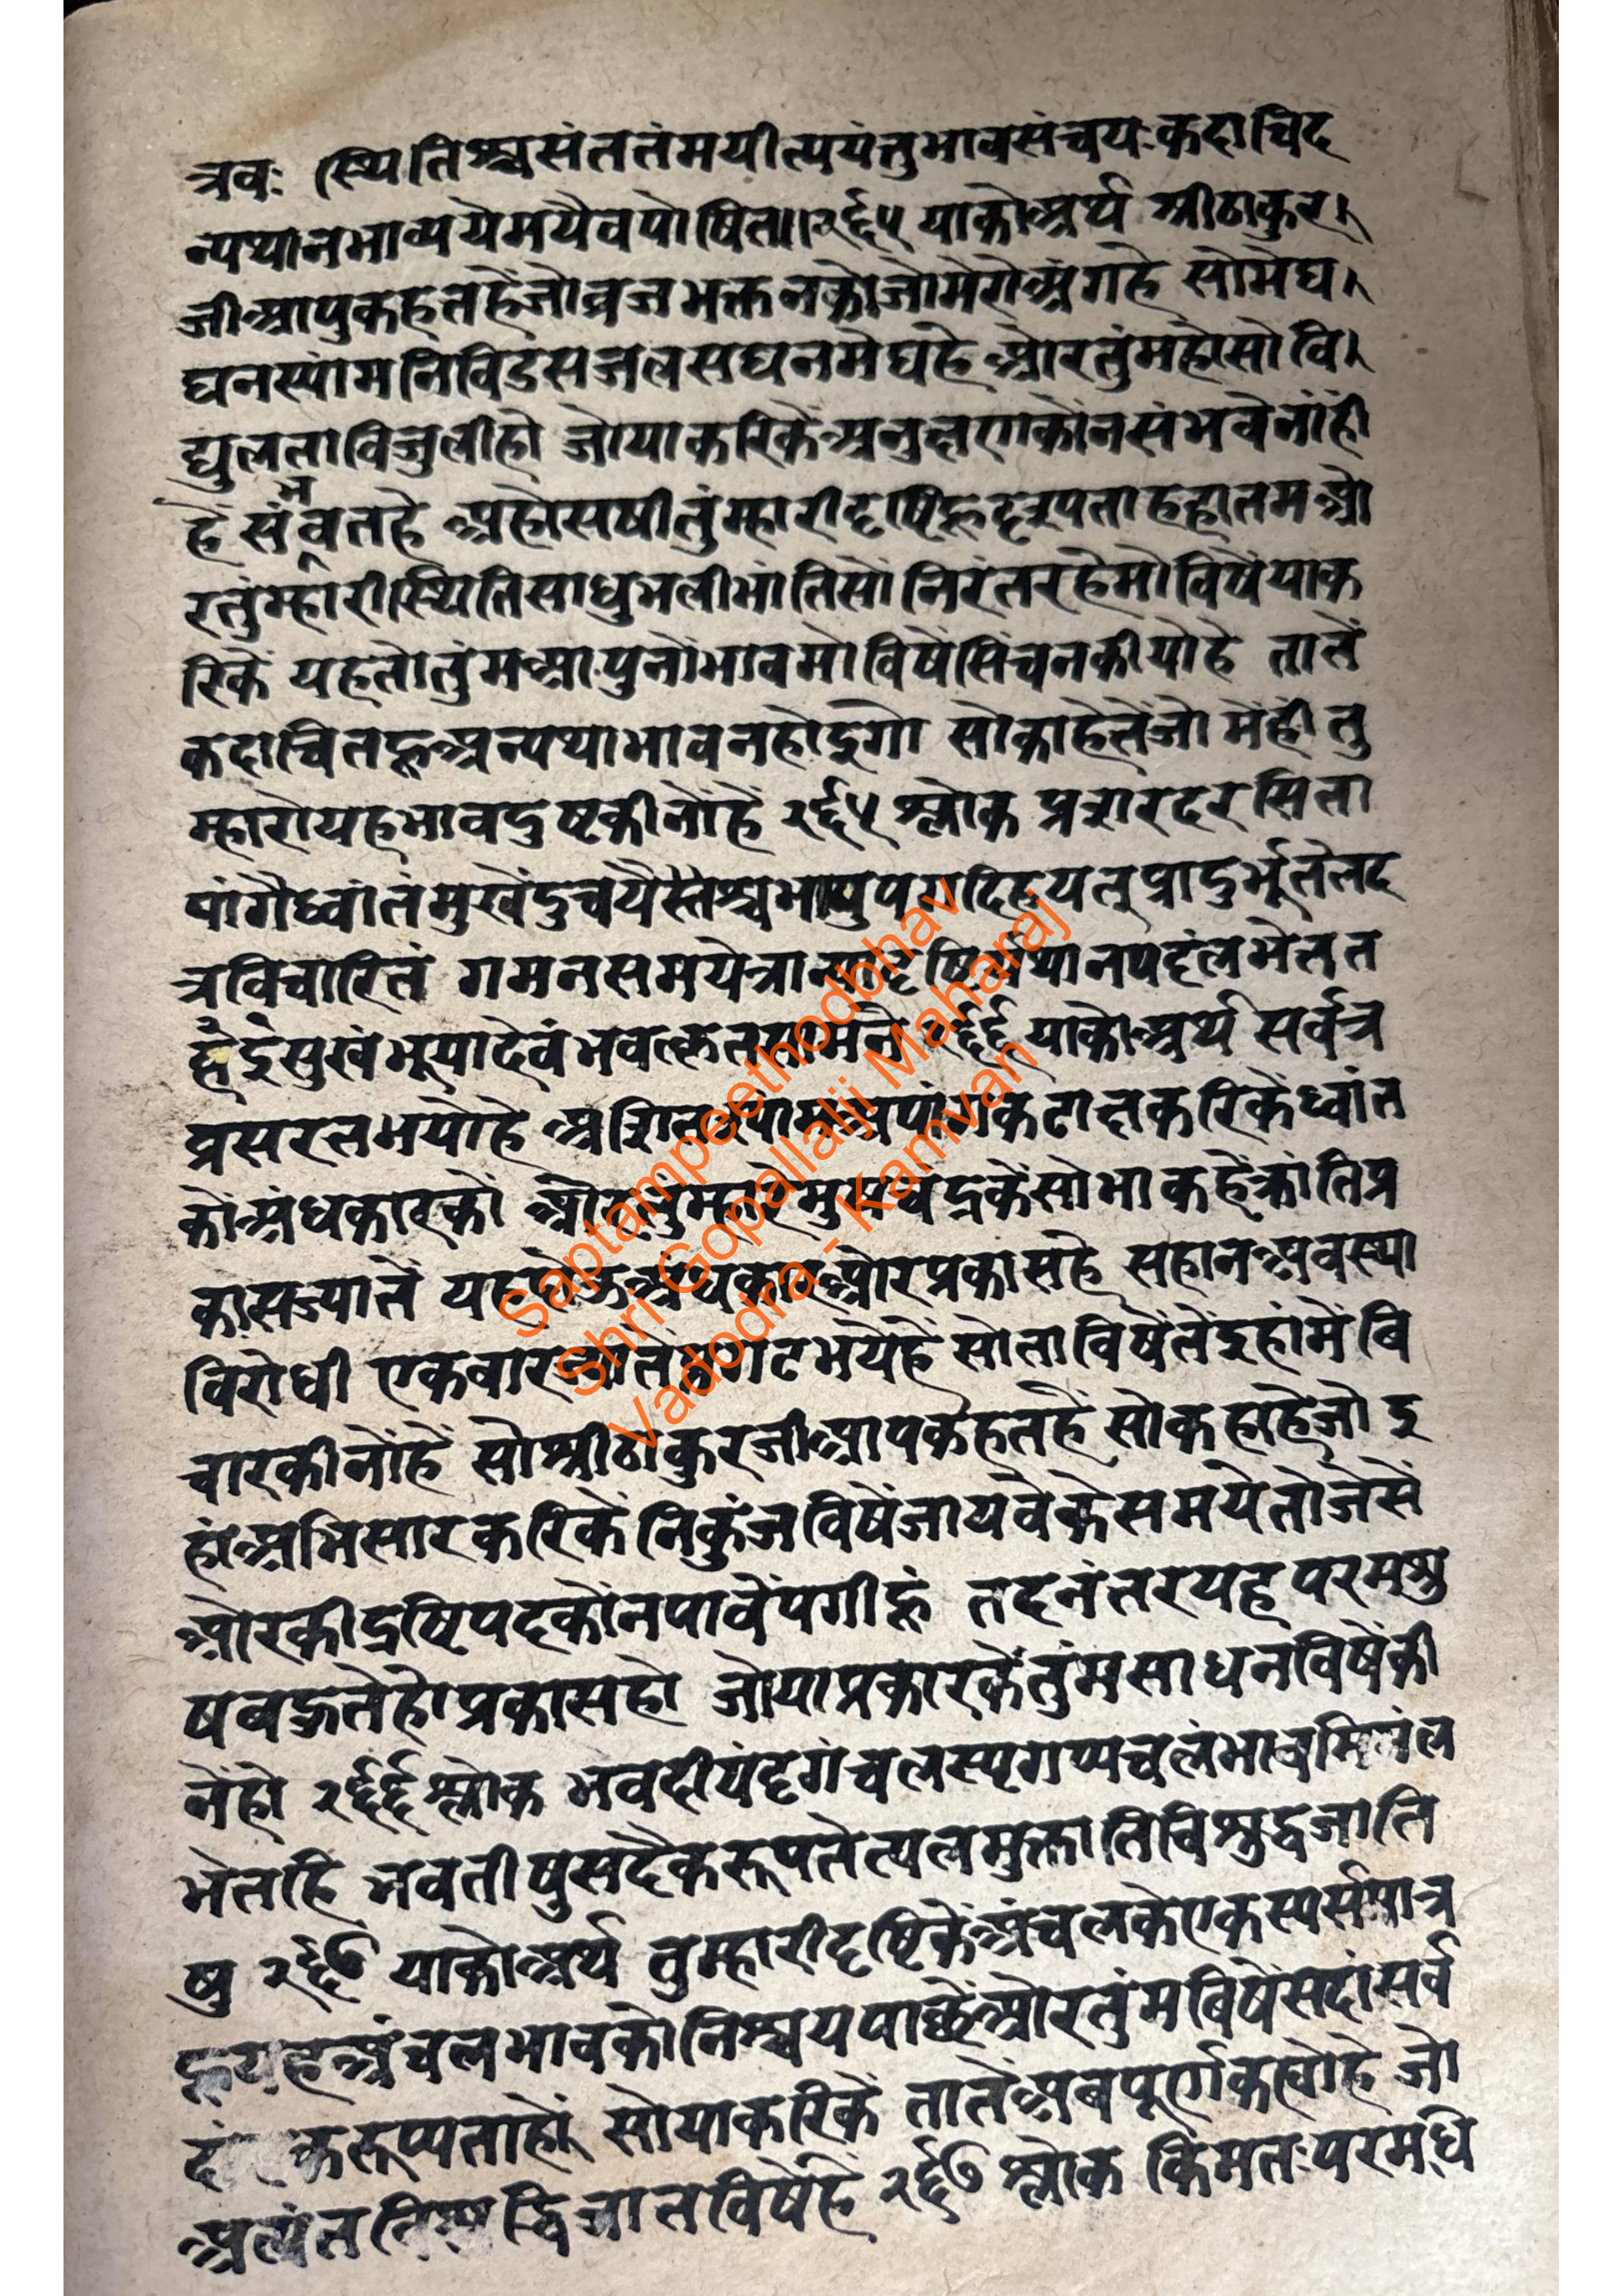 त्रवः स्थितिश्चसंततंमयीत्ययंतुभावसंचयःकदाचिद
न्यथानभाव्ययैमयैवपोषित॥२६५ याकोअर्थ श्रीठाकुर
जीआपुकहतहेंजोव्रजभक्तनकोजोमेरोअंगहे सोमेघ
घनस्यांमनिविडसजलसघनमेघहे ओरतुंमहोसोवि
द्युलताविजुलीहो जोयाकरिकेंअनुल्लएाकोंनसंभवेनांहीं
हे संभवतहे अहोसषीतुंम्हारीदृष्टिहूदृरूपताहहातमओ
रतुंम्हारीस्थितिसाधुभलीभांतिसों निरंतरहेमोविषेंयाक
रिकें यहतोतुंमआपुनोंभावमोविषेंसिंचनकीयोहे तातें
कदाचितहूअन्यथाभावनहोइगो सोकाहेतेंजो मेंहीतु
म्हारोयहभावदुष्टकीनोंहें २६५ श्लोक प्रसारदरसिता
पांगैर्ध्वांतंमुखेंदुचयैस्तैश्चभायुपगदिहयत्प्रादुर्भूतंतद
त्रविचारितं गमनसमयेत्रान्यादृष्टिर्यथानपदंलभेतत
द्दइसुखंभूयादेवंभवत्कृतसाधने २६६ याकोअर्थ सर्वत्र
प्रसरतभयोहे असितस्यांमअपांगकटाक्षकरिकेंध्वांत
कोंअंधकारकों ओरतुंम्हारेमुखचंद्रकेंसोभाकहेंकांतिप्र
कासज्यातें यहदोऊअंधकारओरप्रकासहै सहानअवस्था
विरोधी एकवारआतेंप्रगटभयेहें सोताविषेंतेंइहांमेंबि
चारकीनोंहें सोश्रीठाकुरजीआपकहतहें सोकहाहेजो इ
हांअभिसारकरिकेंनिकुंजविषेंजायवेकेसमयेतोजेसें
ओरकीद्रष्टिपदकोंनपावेंपगीहूं तदनंतरयहपरमसु
षवद्भतेहोप्रकासहो जोयाप्रकारकेंतुंमसाधनविषेंकी
नेंहो २६६ श्लोक भवदीयंदृगंचलस्पृगप्यचलंभावमिलंल
भेतहि भवतीषुसदैकरूपतेत्यलमुक्तातिविशुद्धजाति
षु २६७ याकोअर्थ तुम्हारीदृष्टिकेंअंचलकेएकस्पर्समात्र
हूयहअंचलभावकोनिश्चयपावेंओरतुंमबिषेंसदांसर्व
दां एकरूप्यताहों सोयाकरिकें तातेंअबपूर्णकह्योहे जो
अत्यंतविशुद्धिजातविषेहें २६७ श्लोक किमतःपरमधि
Saptampeethodbhav
Shri Gopallalji Maharaj
Vadodra - Kamvan